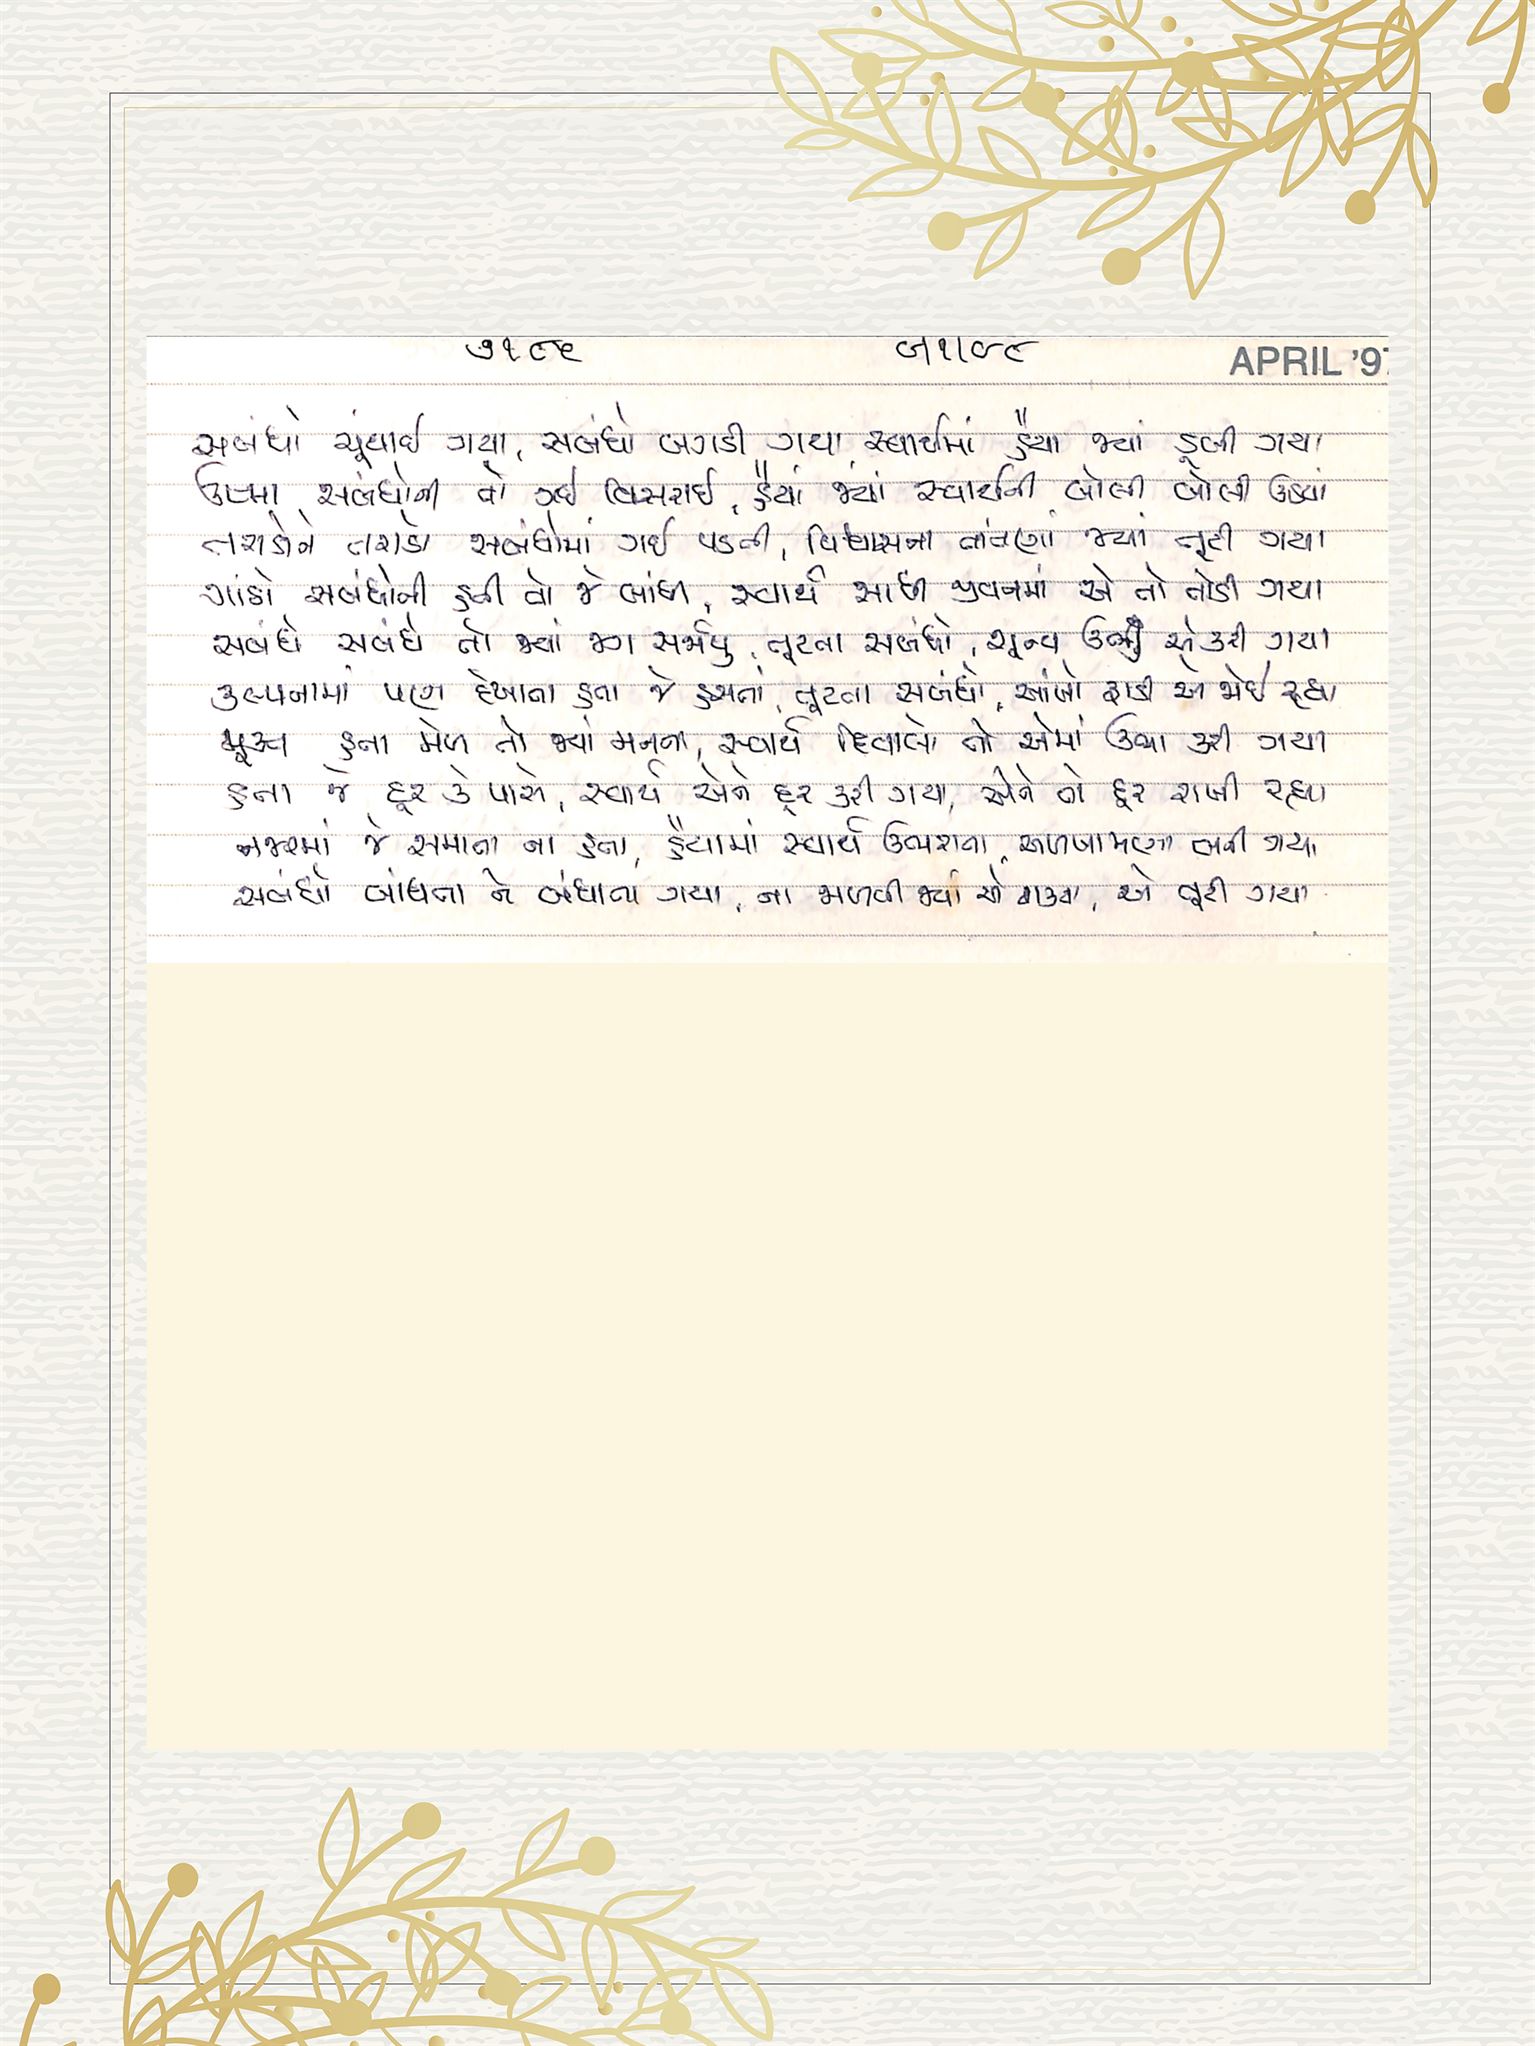 ૭૧૯૬ ૯૧૧૯૮ APRIL '97
સબંધો ચૂંથાઈ ગયા, સબંધો બગડી ગયા, સ્વાર્થમાં હૈયા જ્યાં ડૂબી ગયા
ઉષ્મા સબંધોની તો ગઈ વિસરાઈ, હૈયાં જ્યાં સ્વાર્થની બોલી બોલી ઉઠયાં
તરાડોને તરાડો સબંધોમાં ગઈ પડતી, વિશ્વાસના તાંતણાં જ્યાં તૂટી ગયા
ગાંઠો સબંધોની હતી તો જે બાંધી, સ્વાર્થ સાધી જીવનમાં એ તો તોડી ગયા
સબંધે સબંધે તો જ્યાં જગ સર્જાયુ, તૂટતા સબંધો, શૂન્ય ઉભું એ કરી ગયા
કલ્પનામાં પણ દેખાતા હતા જે હસતાં, તૂટતા સબંધો, આંખો ફાડી એ જોઈ રહ્યા
મૂક્ત હતા મેળ તો જ્યાં મનના, સ્વાર્થ દિવાલો તો એમાં ઉભા કરી ગયા
હતા જે દૂર કે પાસે, સ્વાર્થ એને દૂર કરી ગયા, એને તો દૂર રાખી રહ્યા
નજરમાં જે સમાતા ના હતા, હૈયામાં સ્વાર્થ ઉભરાતા, અળખામણા બની ગયા
સબંધો બાંધતા ને બંધાતા ગયા, ના જાળવી જ્યાં એ, એ તૂટી ગયા